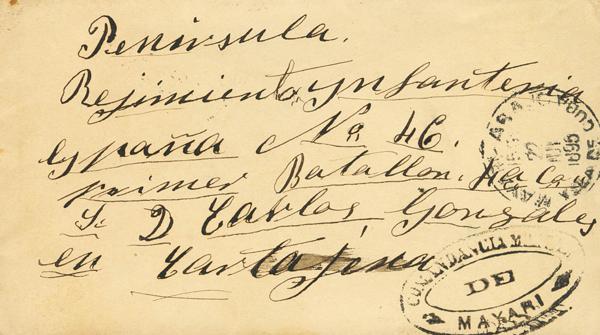 Península.
Rejimiento Ynfanteria
España Nº 46.
primer Batallon. 4ª Ca
Sr D Carlos Gonzales
en Cartajena
CUBA
1895
COMANDANCIA
DE
MAYARI